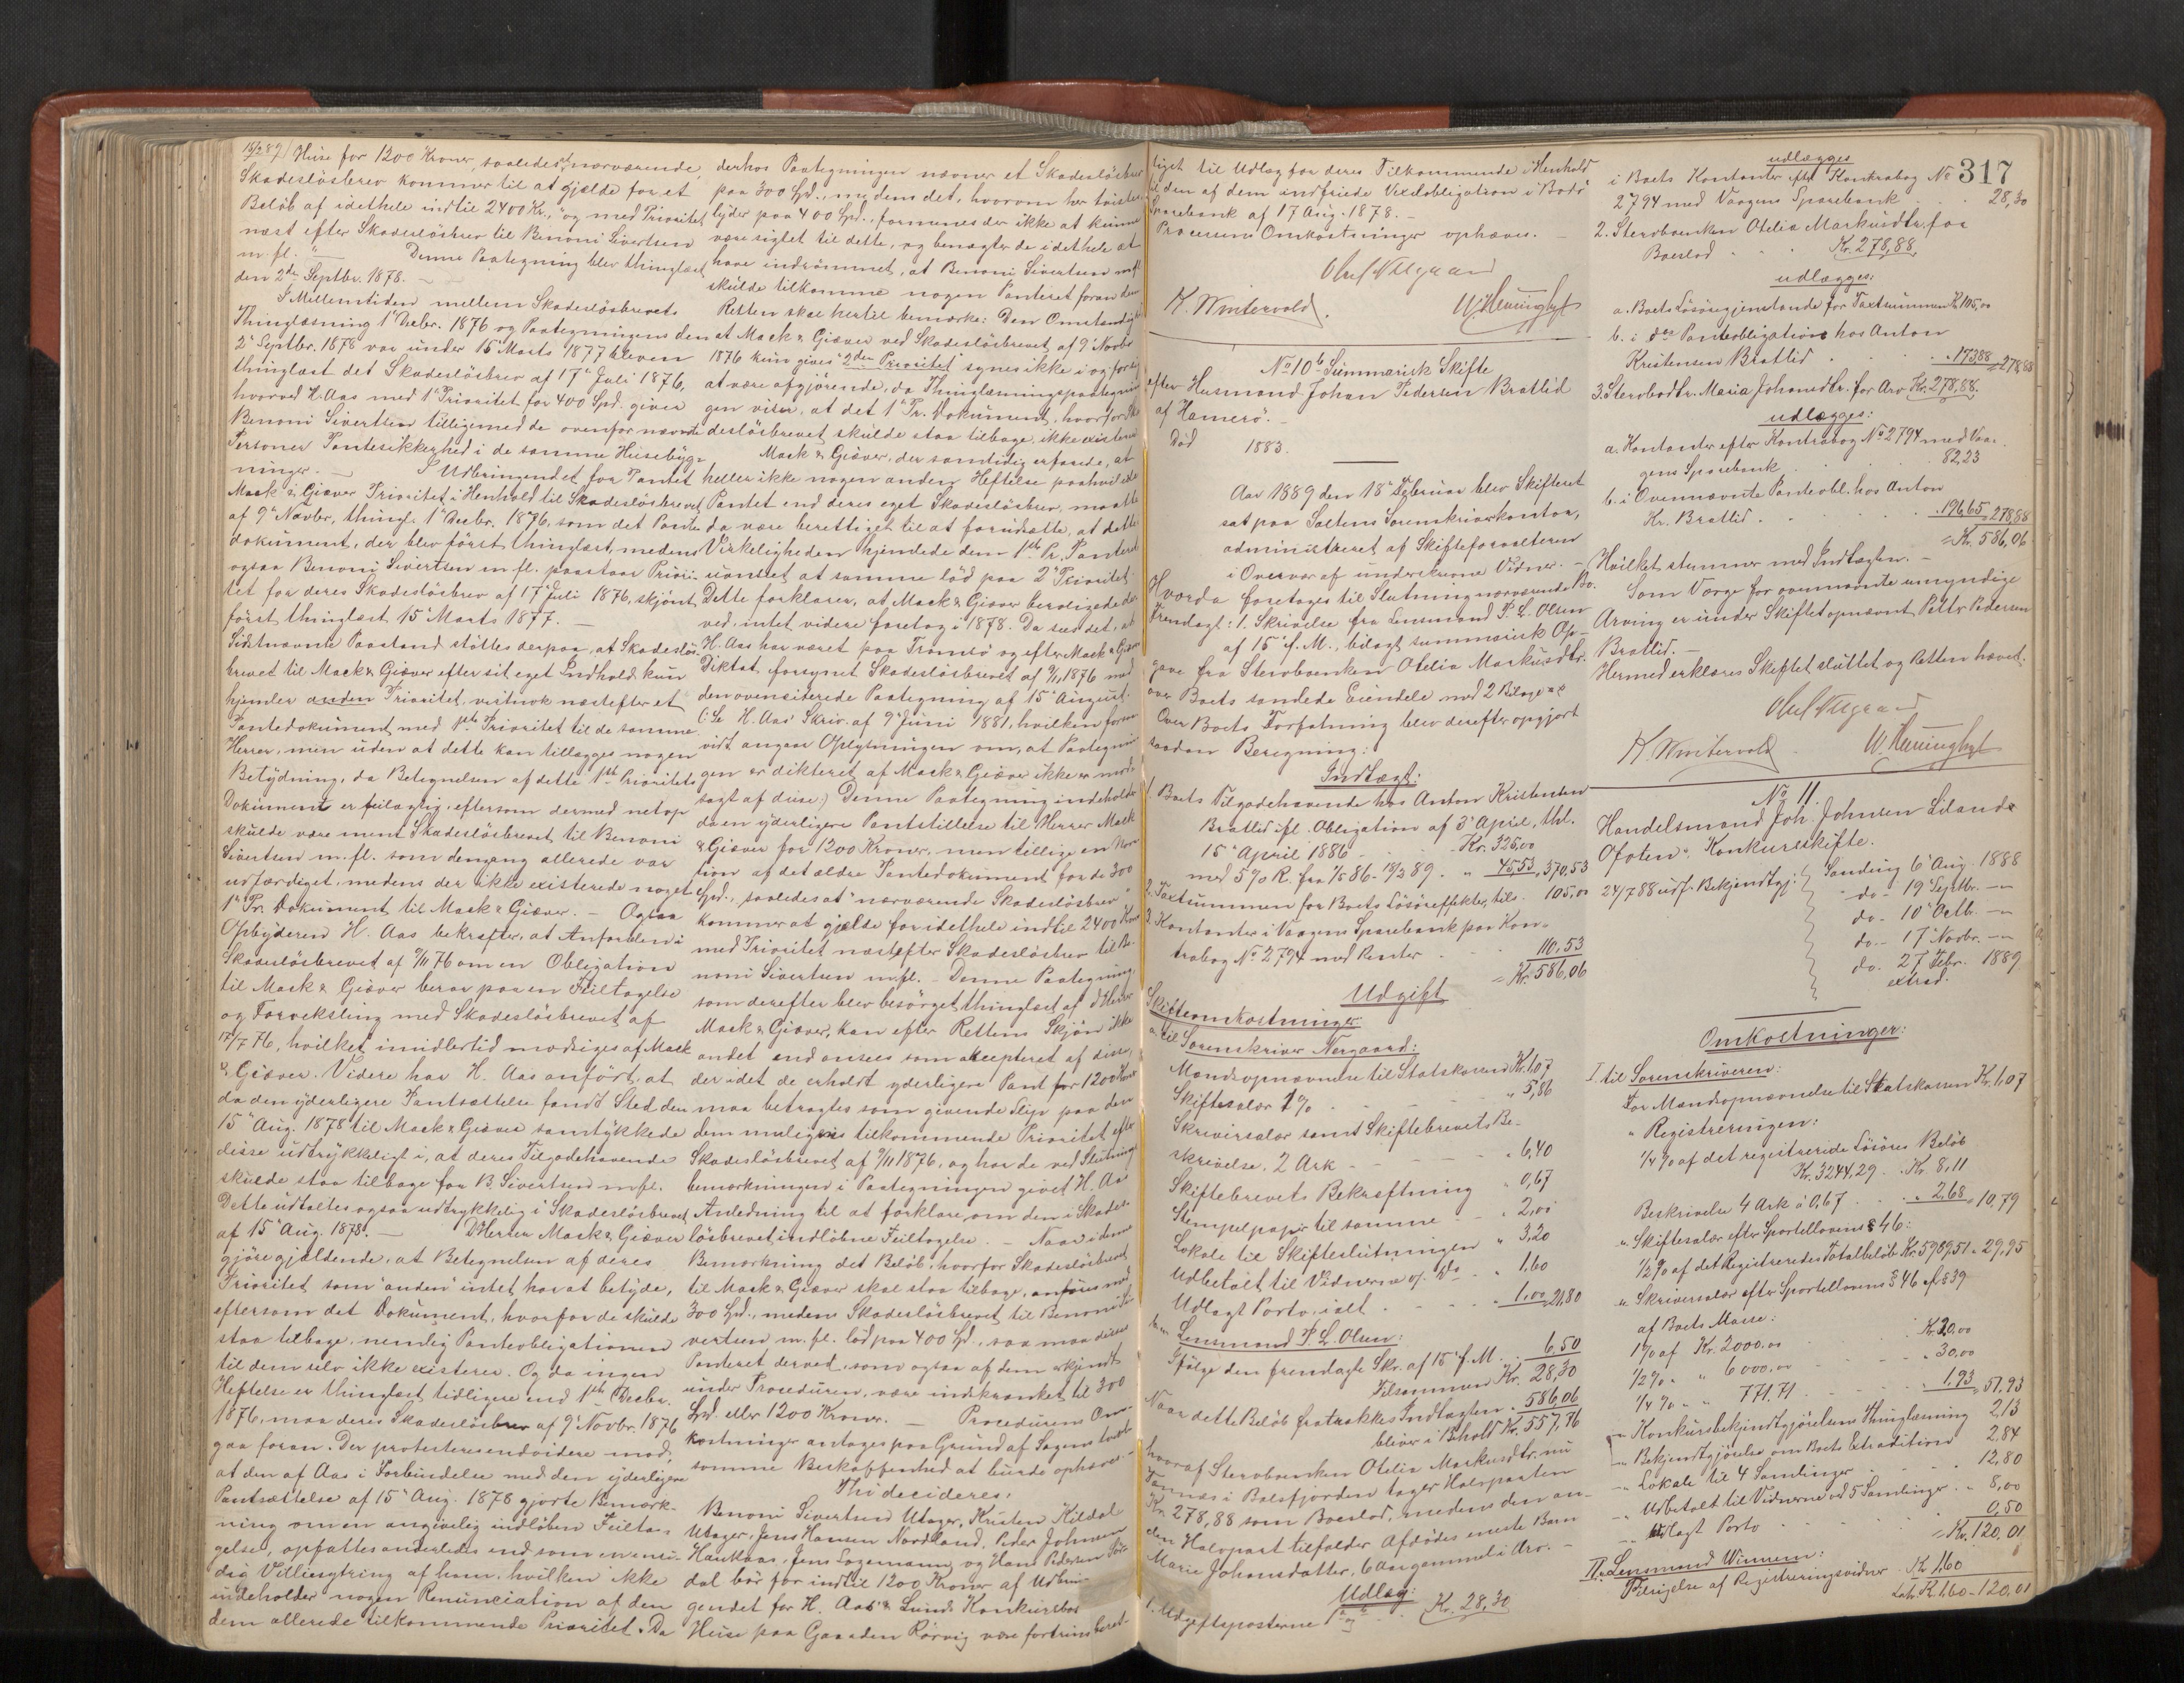 15/2 89/ Huse for 1200 Kroner, saaledes at nærværende
Skadeslösbrev kommer til at gjælde for et
Belöb af idethele indtil 2400 Kr., "og med Prioritet
næst efter Skadeslösbrev til Benoni Sivertsen
m. fl." Denne Paategning blev thinglæst
den 2den Septbr. 1878. —
I Mellemtiden mellem Skadeslösbrevets
Thinglæsning 1' Decbr. 1876 og Paategningens den
2' Septbr. 1878 var under 15' Marts 1877 bleven
thinglæst det Skadeslösbrev af 17' Juli 1876,
hvorved H. Aas med 1' Prioritet for 400 Spd. giver
Benoni Sivertsen tilligemed de ovenfor nævnte
Personer Pantesikkerhed i de samme Husebyg-
ninger. — I Udbringendet for Pantet
Mack & Giæver Prioritet i Henhold til Skadeslösbrevet
af 9' Novbr., thingl. 1' Decbr. 1876, som det Pante-
dokument, der blev först thinglæst, medens
ogsaa Benoni Sivertsen m. fl. paastaar Priori-
tet for deres Skadeslösbrev af 17' Juli 1876, skjönt
först thinglæst 15' Marts 1877. —
Sidstnævnte Paastand stöttes derpaa, at Skadeslös-
brevet til Mack & Giæver efter sit eget Indhold kun
hjemler anden Prioritet, vistnok næstefter et
Pantedokument med 1ste Prioritet til de samme
Herrer, men uden at dette kan tillægges nogen
Betydning, da Betegnelsen af dette 1ste Prioritets
Dokument er feilagtig, eftersom dermed netop
skulde være ment Skadeslösbrevet til Benoni
Sivertsen m. fl. som dengang allerede var
udfærdiget, medens der ikke existerede noget
1' Pr. Dokument til Mack & Giæver. — Ogsaa
Opbyderen H. Aas bekræfter, at Anförslen i
Skadeslösbrevet af 9/11 76 om en Obligation
til Mack & Giæver beror paa en Feiltagelse
og Forveksling med Skadeslösbrevet af
17/7 76, hvilket imidlertid modsiges af Mack
& Giæver. Videre har H. Aas anfört, at
da den yderligere Pantsættelse fandt Sted den
15' Aug. 1878 til Mack & Giæver samtykkede
disse udtrykkeligt i, at deres Tilgodehavende
skulde staa tilbage for B. Sivertsen m. fl.
Dette udtaltes ogsaa udtrykkelig i Skadeslösbrevet
af 15' Aug. 1878. — D'Herrer Mack & Giæver
gjöre gjældende, at Betegnelsen af deres
Prioritet som "anden" intet har at betyde,
eftersom det Dokument, hvorfor de skulde
staa tilbage, nemlig Panteobligationen
til dem selv ikke existerer. Og da ingen
Heftelse er thinglæst tidligere end 1ste Decbr.
1876, maa deres Skadeslösbrev af 9' Novbr. 1876
gaa foran. Der protesteres endvidere mod,
at den af Aas i Forbindelse med den yderligere
Pantsættelse af 15' Aug. 1878 gjorte Bemærk-
ning om en angivelig indlöben Feilta-
gelse, opfattes anderledes end som en ensi-
dig Villiesytring af ham, hvilken ikke
indeholder nogen Renunciation af den
dem allerede tilkommende Prioritet. Da
derhos Paategningen nævner et Skadeslösbrev
paa 300 Spd., medens det, hvorom her tvistes,
lyder paa 400 Spd., formenes der ikke at kunne
være sigtet til dette, og benægter de idethele at
have indrömmet, at Benoni Sivertsen m. fl.
skulde tilkomme nogen Panteret foran dem.
Retten skal hertil bemærke: Den Omstændighed
at Mack & Giæver ved Skadeslösbrevet af 9' Novbr
1876 kun gives "2den Prioritet" synes ikke i og for sig
at være afgjörende, da Thinglæsningspaategnin-
gen viser, at det 1' Pr. Dokument, hvorfor Ska-
deslösbrevet skulde staa tilbage, ikke existerer
Mack & Giæver, der samtidig erfarede, at
heller ikke nogen anden Heftelse paahvilede
Pantet end deres eget Skadeslösbrev, maatte
da være berettiget til at forudsætte, at dette
Virkeligheden hjemlede dem 1ste Pr. Panteret
uanset at samme löd paa 2' Prioritet.
Dette forklarer, at Mack & Giæver beroligede der-
ved, intet videre foretog i 1878. Da sees det, at
H. Aas har været paa Tromsö og efter Mack & Giævers
Diktat forsynet Skadeslösbrevet af 9/11 1876 med
den ovenciterede Paategning af 15' August.
(: Se H. Aas' Skriv. af 9' Juni 1881, hvilken forsaa-
vidt angaar Oplysningen om, at Paategnin-
gen er dikteret af Mack & Giæver ikke er mod-
sagt af disse:) Denne Paategning indeholder
da en yderligere Pantstillelse til Herrer Mack
& Giæver for 1200 Kroner, men tillige en
af det ældre Pantedokument for de 300
Spd., saaledes at "nærværende Skadeslösbrev"
kommer at gjælde for idethele indtil 2400 Kroner
med Prioritet næstefter Skadeslösbrev til Be-
noni Sivertsen m. fl. — Denne Paategning,
som derefter blev besörget thinglæst af d'Herrer
Mack & Giæver, kan efter Rettens Skjön ikke
andet end ansees som akcepteret af disse,
der idet de erholdt yderligere Pant for 1200 Kroner
maa betragtes som givende Slip paa den
dem muligens tilkommende Prioritet efter
Skadeslösbrevet af 9/11 1876, og har de ved Slutnings-
bemærkningen i Paategningen givet H. Aas
Anledning til at forklare, om den i Skades-
lösbrevet indlöbne Feiltagelse. — Naar i denne
Bemærkning det Belöb, hvorfor Skadeslösbrevet
til Mack & Giæver skal staa tilbage, anföres med
300 Spd., medens Skadeslösbrevet til Benoni Si-
vertsen m. fl. löd paa 400 Spd., saa maa disses
Panteret derved, som ogsaa af dem erkjendt
under Proceduren, være indskrænket til 300
Spd. eller 1200 Kroner. — Procedurens Om-
kostninger antages paa Grund af Sagens tvivl-
somme Beskaffenhed at burde ophæves. —
Thi decideres:
Benoni Sivertsen Utager, Kristen Kildal
Utager, Jens Hansen Nordland, Peder Johnsen
Hauklaas, Jens Lagemann og Hans Pedersen
dal bör for indtil 1200 Kroner af Udbrin-
gendet for H. Aas's & Lunds Konkursbos
Huse paa Gaarden Rörvig være fortrinsberet-
tiget til Udlæg for deres Tilkommende i Henhold
til den af dem indfriede Vexelobligation i Bodö
Sparebank af 17 Aug. 1878. —
Processens Omkostninger ophæves. —
Oluf Nergaard
K. Wintervold. W. Henninghgt
No 10b Summarisk Skifte
efter Husmand Johan Pedersen Bratlid
af Hamerö. —
Död 1883.
Aar 1889 den 18' Februar blev Skifteret
sat paa Saltens Sorenskriverkontor,
administreret af Skifteforvalteren
i Overvær af underskrevne Vidner. —
Hvorda foretoges til Slutning nærværende Bo.
Fremlagt: 1. Skrivelse fra Lensmand P. L. Olsen
af 15' f. M., bilagt summarisk Op-
gave fra Stervboenken Otelia Markusdtr.
over Boets samlede Eiendele med 2 Bilage
Over Boets Forfatning blev derefter opgjort
saadan Beregning:
Indtægt:
1. Boets Tilgodehavende hos Anton Kristensen
Bratlid ifl. Obligation af 3' April, thl.
15' April 1886 . . Kr. 325,00
med 5 % R. fra 1/5 86 - 18/2 89. " 45,53, 370,53
2. Taxtsummen for Boets Lösöreffekter, tils. 105,00
3. Kontanter i Vaagens Sparebank paa Kon-
trabog No 2794 med Renter . . 110,53
= Kr. 586,06
Udgift
Skifteomkostninger
a. til Sorenskriver Nergaard:
Mandsopnævnelse til Statskassen Kr. 1,07
Skiftesalær 1 % . . " 5,86
Skriversalær samt Skiftebrevets Be-
skrivelse, 2 Ark . . " 6,40
Skiftebrevets Bekræftning " 0,67
Stempelpapir til samme . " 2,00
Lokale til Skifteslutningen " 3,20
Udbetalt til Vidnerne v/. Do . " 1,60
Udlagt Porto, ialt . . " 1,00 21,80
b. Lensmand P. L. Olsen:
Ifölge den fremlagte Skr. af 15' f. M. . 6,50
Tilsammen Kr. 28,30
Naar dette Belöb fratrækkes Indtægten . 586,06
bliver i Behold Kr. 557,76
hvoraf Stervboenken Otelia Markusdtr. nu
Tannæs i Balsfjorden tager Halvparten
Kr. 278,88 som Boeslod, medens den an-
den Halvpart tilfalder Afdödes eneste Barn
Marie Johansdatter, 6 Aar gammel i Arv. —
Udlæg:
1. Udgiftsposterne 1 a og b . . Kr. 28,30
317
udlægges
i Boets Kontanter efter Kontrabog No
2794 med Vaagens Sparebank . . 28,30
2. Stervboenken Otelia Markusdtr. for
Boeslod . . Kr. 278,88
udlægges:
a. Boets Lösöregjenstande for Taxtsummen Kr. 105,00
b. i Panteobligation hos Anton
Kristensen Bratlid . . " 173,88 = 278,88
3. Stervbodtr. Maria Johansdtr. for Arv Kr. 278,88.
udlægges:
a. Kontanter efter Kontrabog No 2794 med Vaa-
gens Sparebank . . 82,23
b. i Ovennævnte Panteobl. hos Anton
Kr. Bratlid . . . 196,65 278,88
= Kr. 586,06
Hvilket stemmer med Indtægten. —
Som Værge for ovennævnte umyndige
Arving er under Skiftet opnævnt Petter Pedersen
Bratlid. —
Hermed erklæres Skiftet sluttet og Retten hævet.
Oluf Nergaard
K. Wintervold . W. Henninghgt
No 11.
Handelsmand Joh. Johnsen Liland
Ofoten, Konkursskifte.
24/7 88 udf. Bekjendtgj. Samling 6' Aug. 1888
do - 19' Septbr. — "
do - 10' Octb. — "
do - 17' Novbr. — "
do. 27 Febr. 1889
extrad.
Omkostninger:
I. til Sorenskriveren:
For Mandsopnævnelse til Statskassen Kr. 1,07
" Registreringen:
1/4 % af det registrerede Lösöres Belöb
Kr. 3244,29 . . Kr. 8,11
Beskrivelse 4 Ark à 0,67 . . " 2,68 10,79
" Skiftesalær efter Sportellovens § 46:
1/2 % af det Registreredes Totalbelöb Kr. 5989,51 " 29,95
" Skriversalær efter Sportellovens § 46 cfr § 39
af Boets Masse:
1 % af Kr. 2000,00 . . Kr. 20,00
1/2 % - " 6000,00 . . " 30,00
1/4 % - " 771,71 . . " 1,93 51,93
" Konkursbekjendtgjörelsens Thinglæsning 2,13
" Bekjendtgjörelse om Boets Extradition 2,84
" Lokale til 4 Samlinger . . 12,80
" Udbetalt til Vidnerne ved 5 Samlinger . " 8,00
" Udlagt Porto . . 0,50
= Kr. 120,01
II. Lensmand Winum:
Tilsigelse af Registreringsvidner . Kr. 1,60
Lat. Kr. 1,60 - 120,01